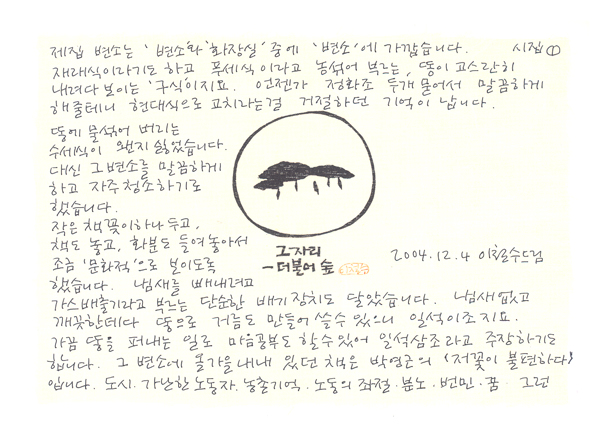 제집 변소는 '변소'와 '화장실' 중에 '변소'에 가깝습니다. 시집①
재래식이라기도 하고 푸세식이라고 농섞어 부르는, 똥이 고스란히
내려다 보이는 '구식'이지요. 언젠가 정화조 두개 묻어서 말끔하게
해줄테니 현대식으로 고치라는걸 거절하던 기억이 납니다.
똥에 물섞어 버리는
수세식이 왠지 싫었습니다.
대신 그 변소를 말끔하게
하고 자주 청소하기로
했습니다.
작은 책꽂이 하나 두고,
책도 놓고, 화분도 들여놓아서
조금 '문화적'으로 보이도록
했습니다. 냄새를 빼내려고
그 자리
- 더불어 숲
2004.12.4 이철수드림
가스배출기라고 부르는 단순한 배기장치도 달았습니다. 냄새없고
깨끗한데다 똥으로 거름도 만들어 쓸수 있으니 일석이조지요.
가끔 똥을 퍼내는 일로 마음공부도 할 수 있어 일석삼조라고 주장하기도
합니다. 그 변소에 올가을내내 있던 책은 박영근의 '저꽃이 불편하다'
입니다. 도시. 가난한 노동자. 농촌기억. 노동의 좌절. 분노. 번민. 꿈. 그런